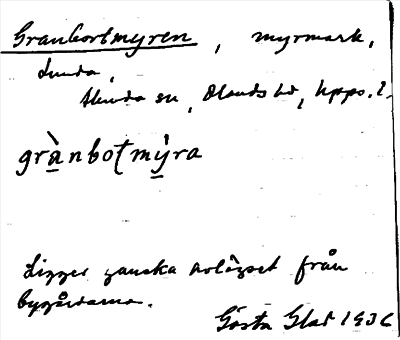 Granbortmyren, myrmark,
Lunda,
Alunda sn, Olands hd, Upps. l.
grànbotmýra
Ligger ganska avlägset från
bygårdarna.
Gösta Glad 1936